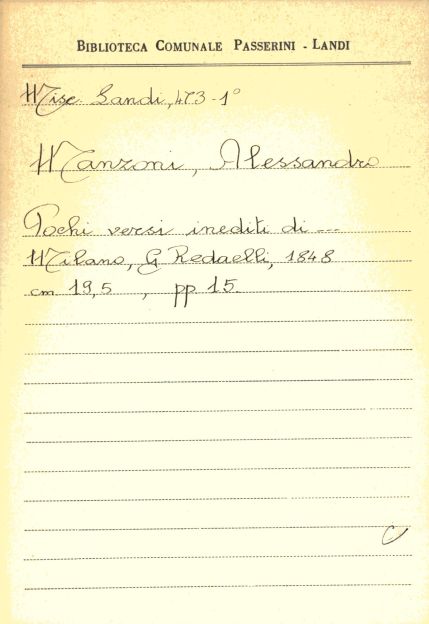 BIBLIOTECA COMUNALE PASSERINI - LANDI
Misc. Landi, 473-1°
Manzoni, Alessandro
Pochi versi inediti di ---
Milano, G. Redaelli, 1848
cm 19,5 , pp 15.